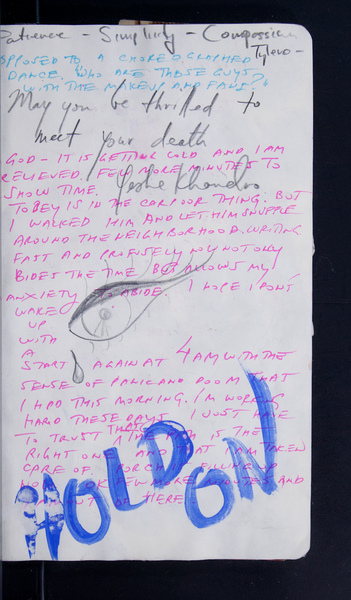 Patience - Simplicity - Compassion
Tylero -
OPPOSED TO A CHOREOGRAPHED
DANCE. WHO ARE THOSE GUYS
WITH THE MAKEUP AND FANS?
May you be thrilled to
meet your death
Yeshe Khandro
GOD - IT IS GETTING COLD AND I AM
RELIEVED. FEW MORE MINUTES TO
SHOW TIME.
TOBEY IS IN THE CAR POOR THING. BUT
I WALKED HIM AND LET HIM SNUFFLE
AROUND THE NEIGHBORHOOD. WRITING
FAST AND PROFUSELY NOW NOT ONLY
BIDES THE TIME BUT ALLOWS MY
ANXIETY TO ABIDE. I HOPE I DON'T
WAKE
UP
WITH
A
START AGAIN AT 4 AM WITH THE
SENSE OF PANIC AND DOOM THAT
I HAD THIS MORNING. I'M WORKING
HARD THESE DAYS. I JUST HAVE
TO TRUST THAT THIS PATH IS THE
RIGHT ONE AND THAT I AM TAKEN
CARE OF. PORCH FILLING UP
NOW. FEW MORE MINUTES AND
OUT OF HERE
HOLD ON